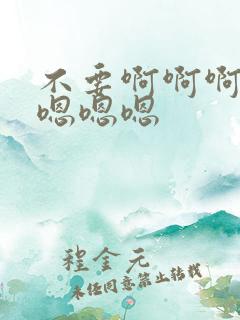 不要啊啊啊
嗯嗯嗯
程金元
未经同意禁止转载